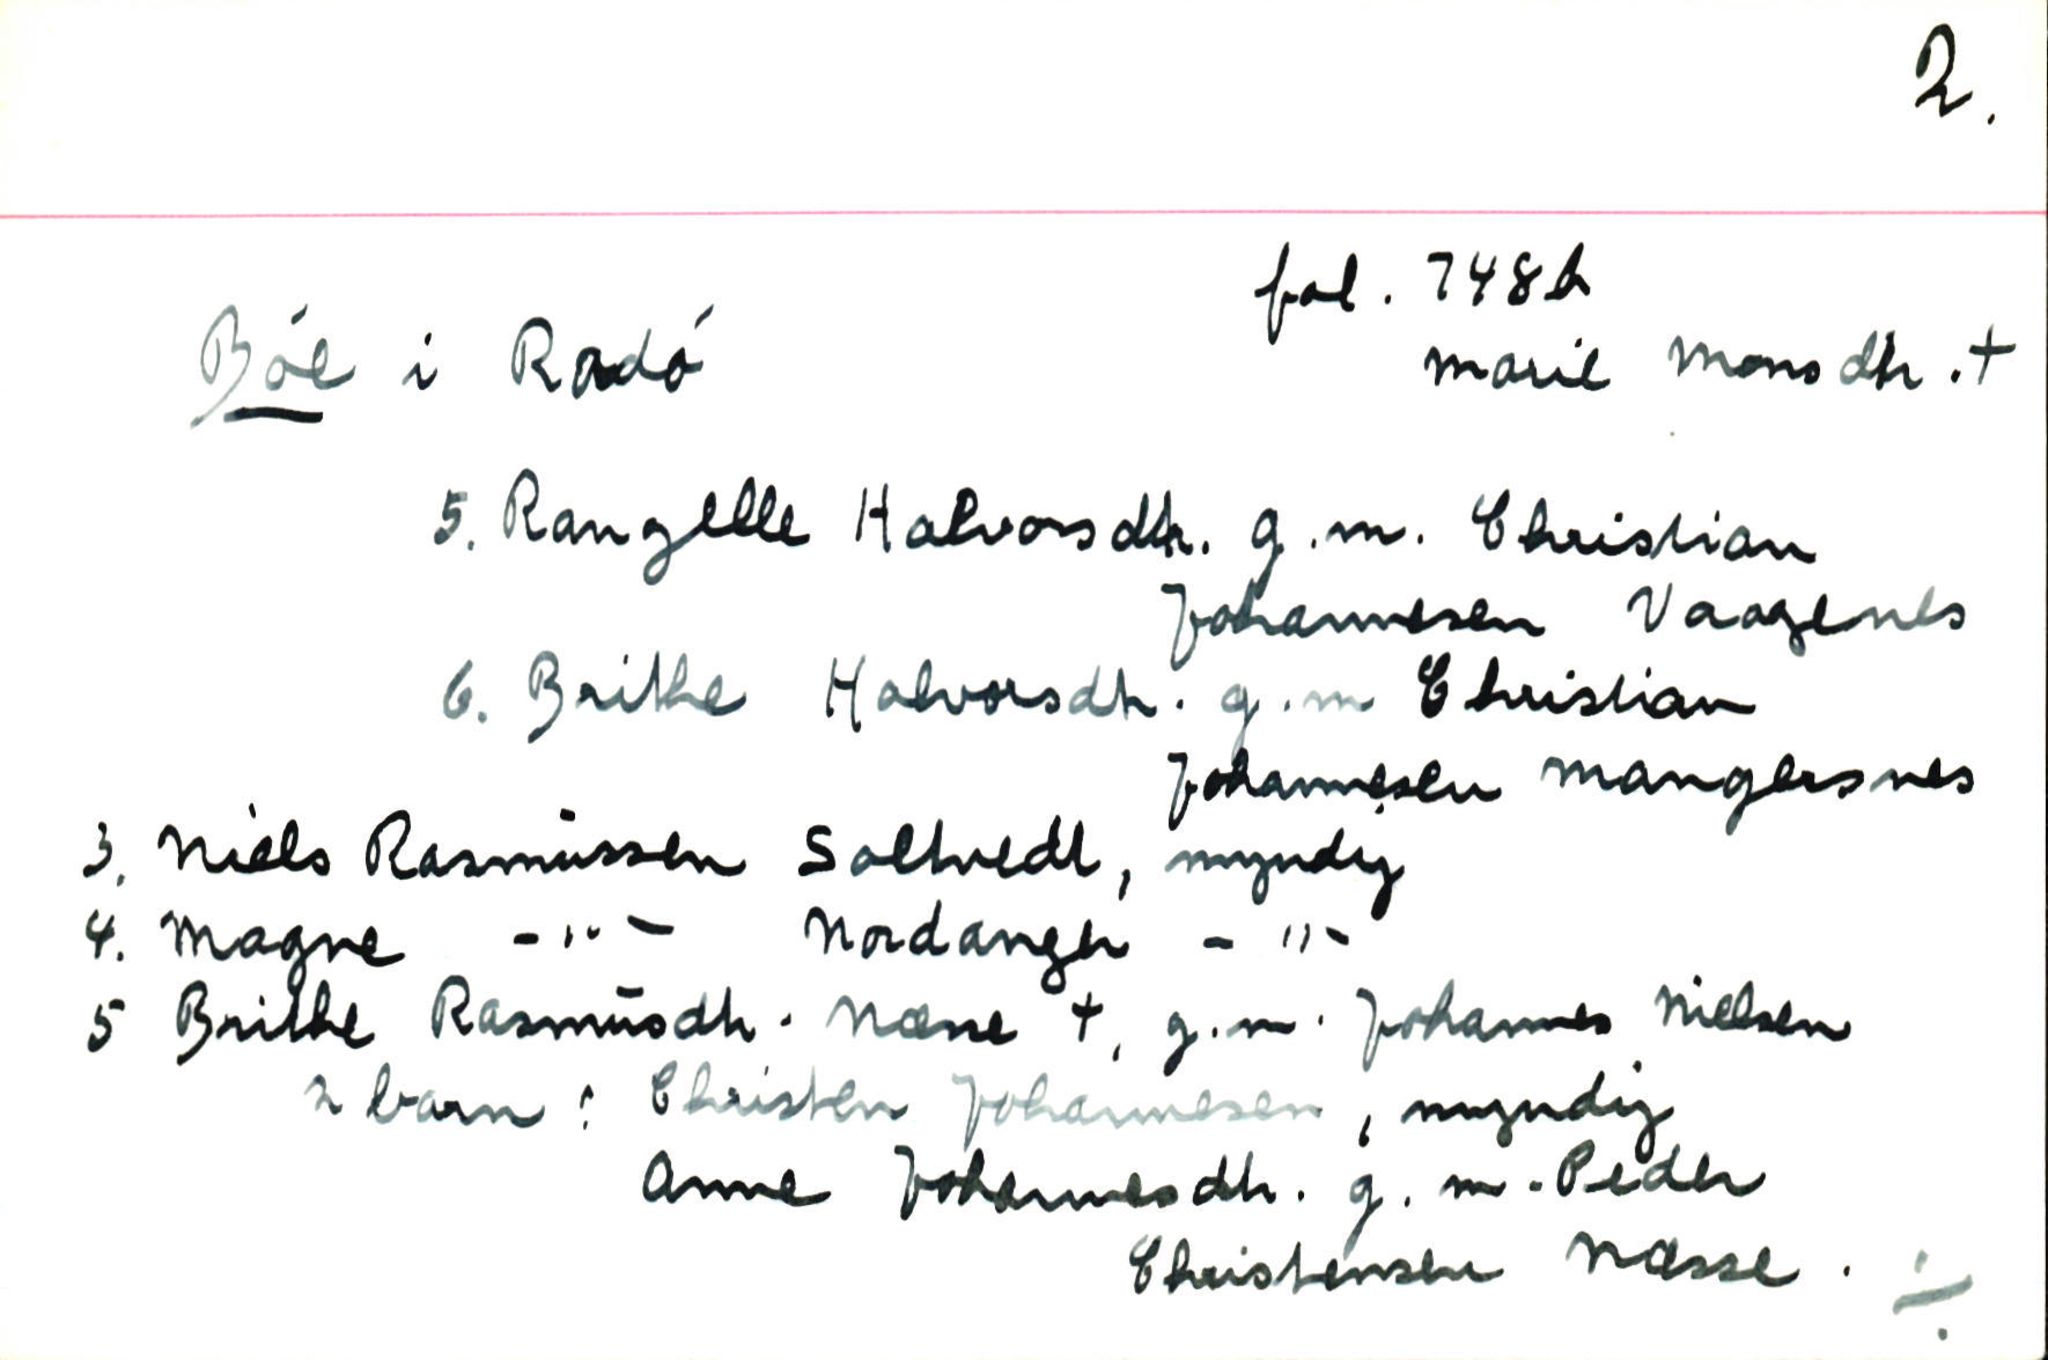 2.
fol. 748b
Böe i Radö
Marie Monsdtr. +
5. Rangelle Halvorsdtr. g.m. Christian
Johannesen Vaagenes
6. Brithe Halvorsdtr. g.m Christian
Johannesen Mangersnes
3. Niels Rasmussen Soltvedt, myndig
4. Magne -"- Nordanger -"-
5 Brithe Rasmusdtr. Næsse +, g.m. Johannes Nielsen
2 barn: Christen Johannesen, myndig
Anne Johannesdtr. g.m. Peder
Christensen Næsse.